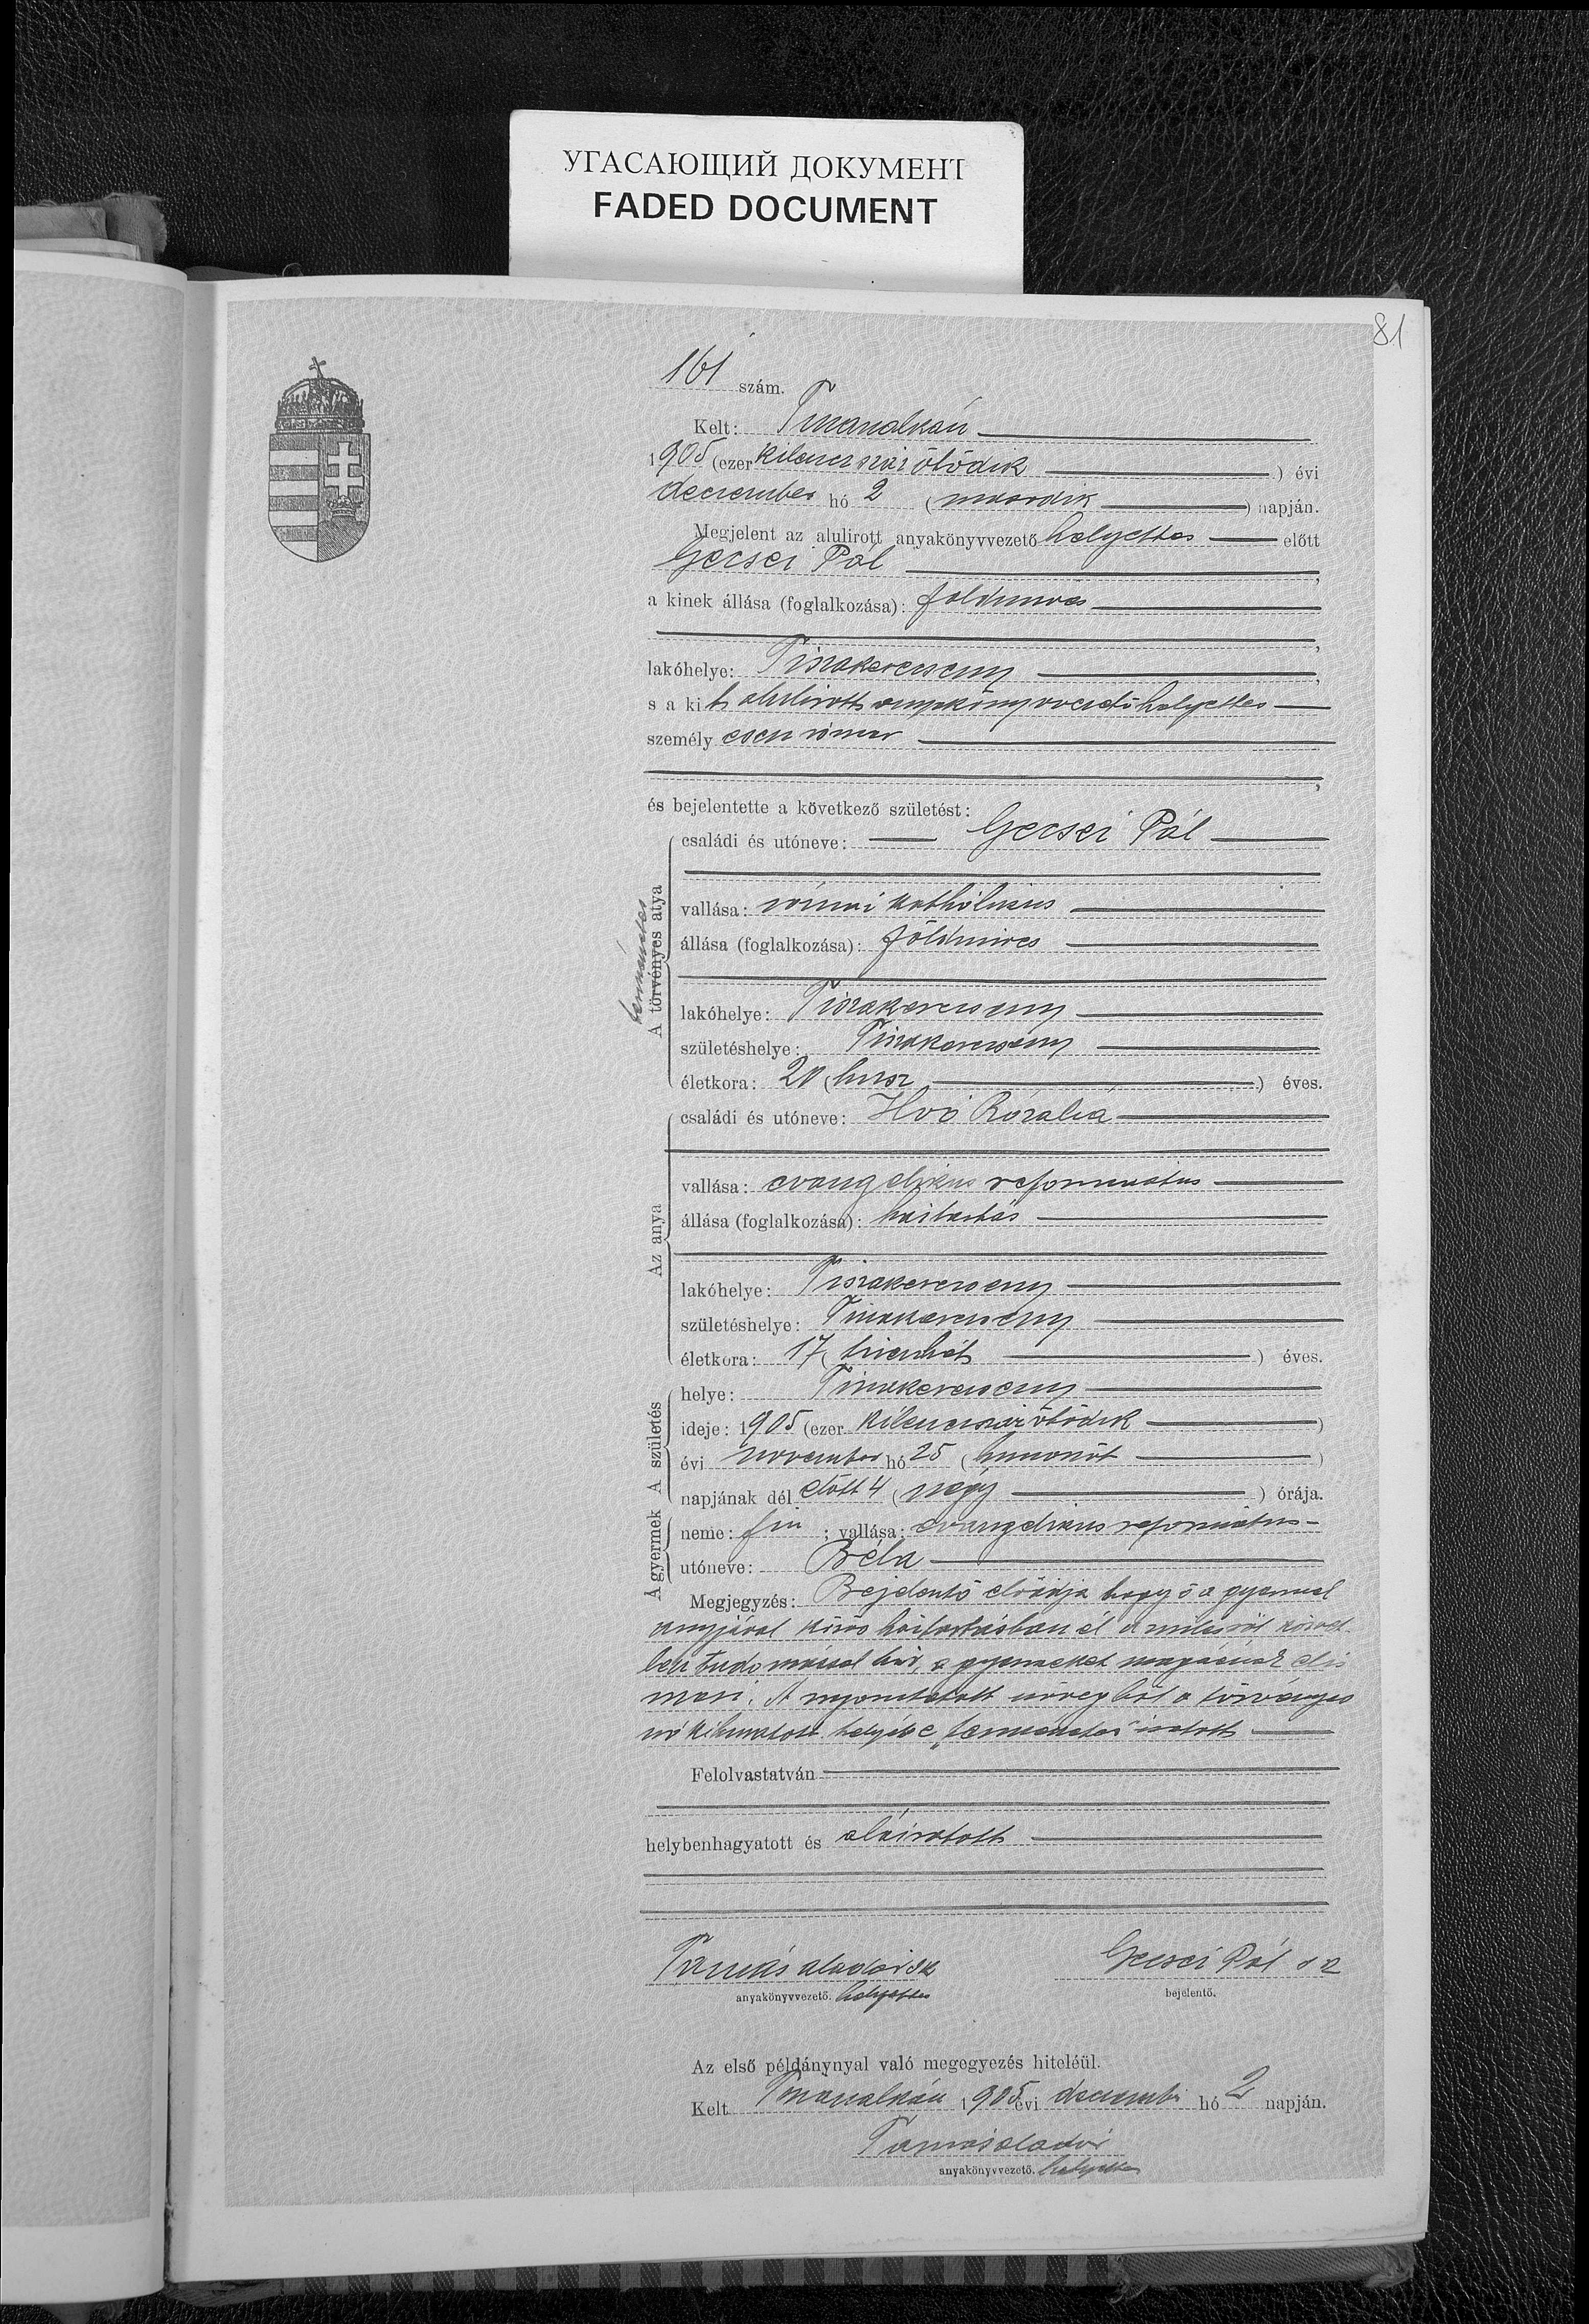 УГАСАЮЩИЙ ДОКУМЕНТ
FADED DOCUMENT
81
161 szám.
Kelt: Tiszasalkán
1905 (ezer kilenczszázötödik) évi
deczember hó 2 (második) napján.
Megjelent az alulirott anyakönyvvezető helyettes előtt
Gecsei Pál,
a kinek állása (foglalkozása): földmives,
lakóhelye: Tiszakerecseny,
s a kit alulirott anyakönyvvezető helyettes
személyesen ismer,
és bejelentette a következő születést:
természetes
A törvényes atya
családi és utóneve: Gecsei Pál
vallása: római katholikus
állása (foglalkozása): földmives
lakóhelye: Tiszakerecseny
születéshelye: Tiszakerecseny
életkora: 20 (husz) éves.
Az anya
családi és utóneve: Rozália
vallása: evangelikus református
állása (foglalkozása): háztartás
lakóhelye: Tiszakerecseny
születéshelye: Tiszakerecseny
életkora: 17 (tizenhét) éves.
A születés
helye: Tiszakerecseny
ideje: 1905 (ezer kilenczszázötödik)
évi november hó 25 (huszonöt)
napjának dél előtt 4 (négy) órája.
A gyermek
neme: fiu; vallása: evangelikus református
utóneve: Béla
Megjegyzés: Bejelentő előadja hogy ő a gyermek
anyjával közös háztartásban él a miről közvet-
len tudomással bir, a gyermeket magáénak elis
meri. A nyomtatott szövegből a törvényes
szó kihuzatott helyébe „természetes" iratott
Felolvastatván
helybenhagyatott és aláiratott
Tamás Aladár sk
anyakönyvvezető. helyettes
Gecsei Pál
bejelentő.
Az első példánynyal való megegyezés hiteléül.
Kelt 1905 évi deczember hó 2 napján.
Tamás Aladár
anyakönyvvezető. helyettes